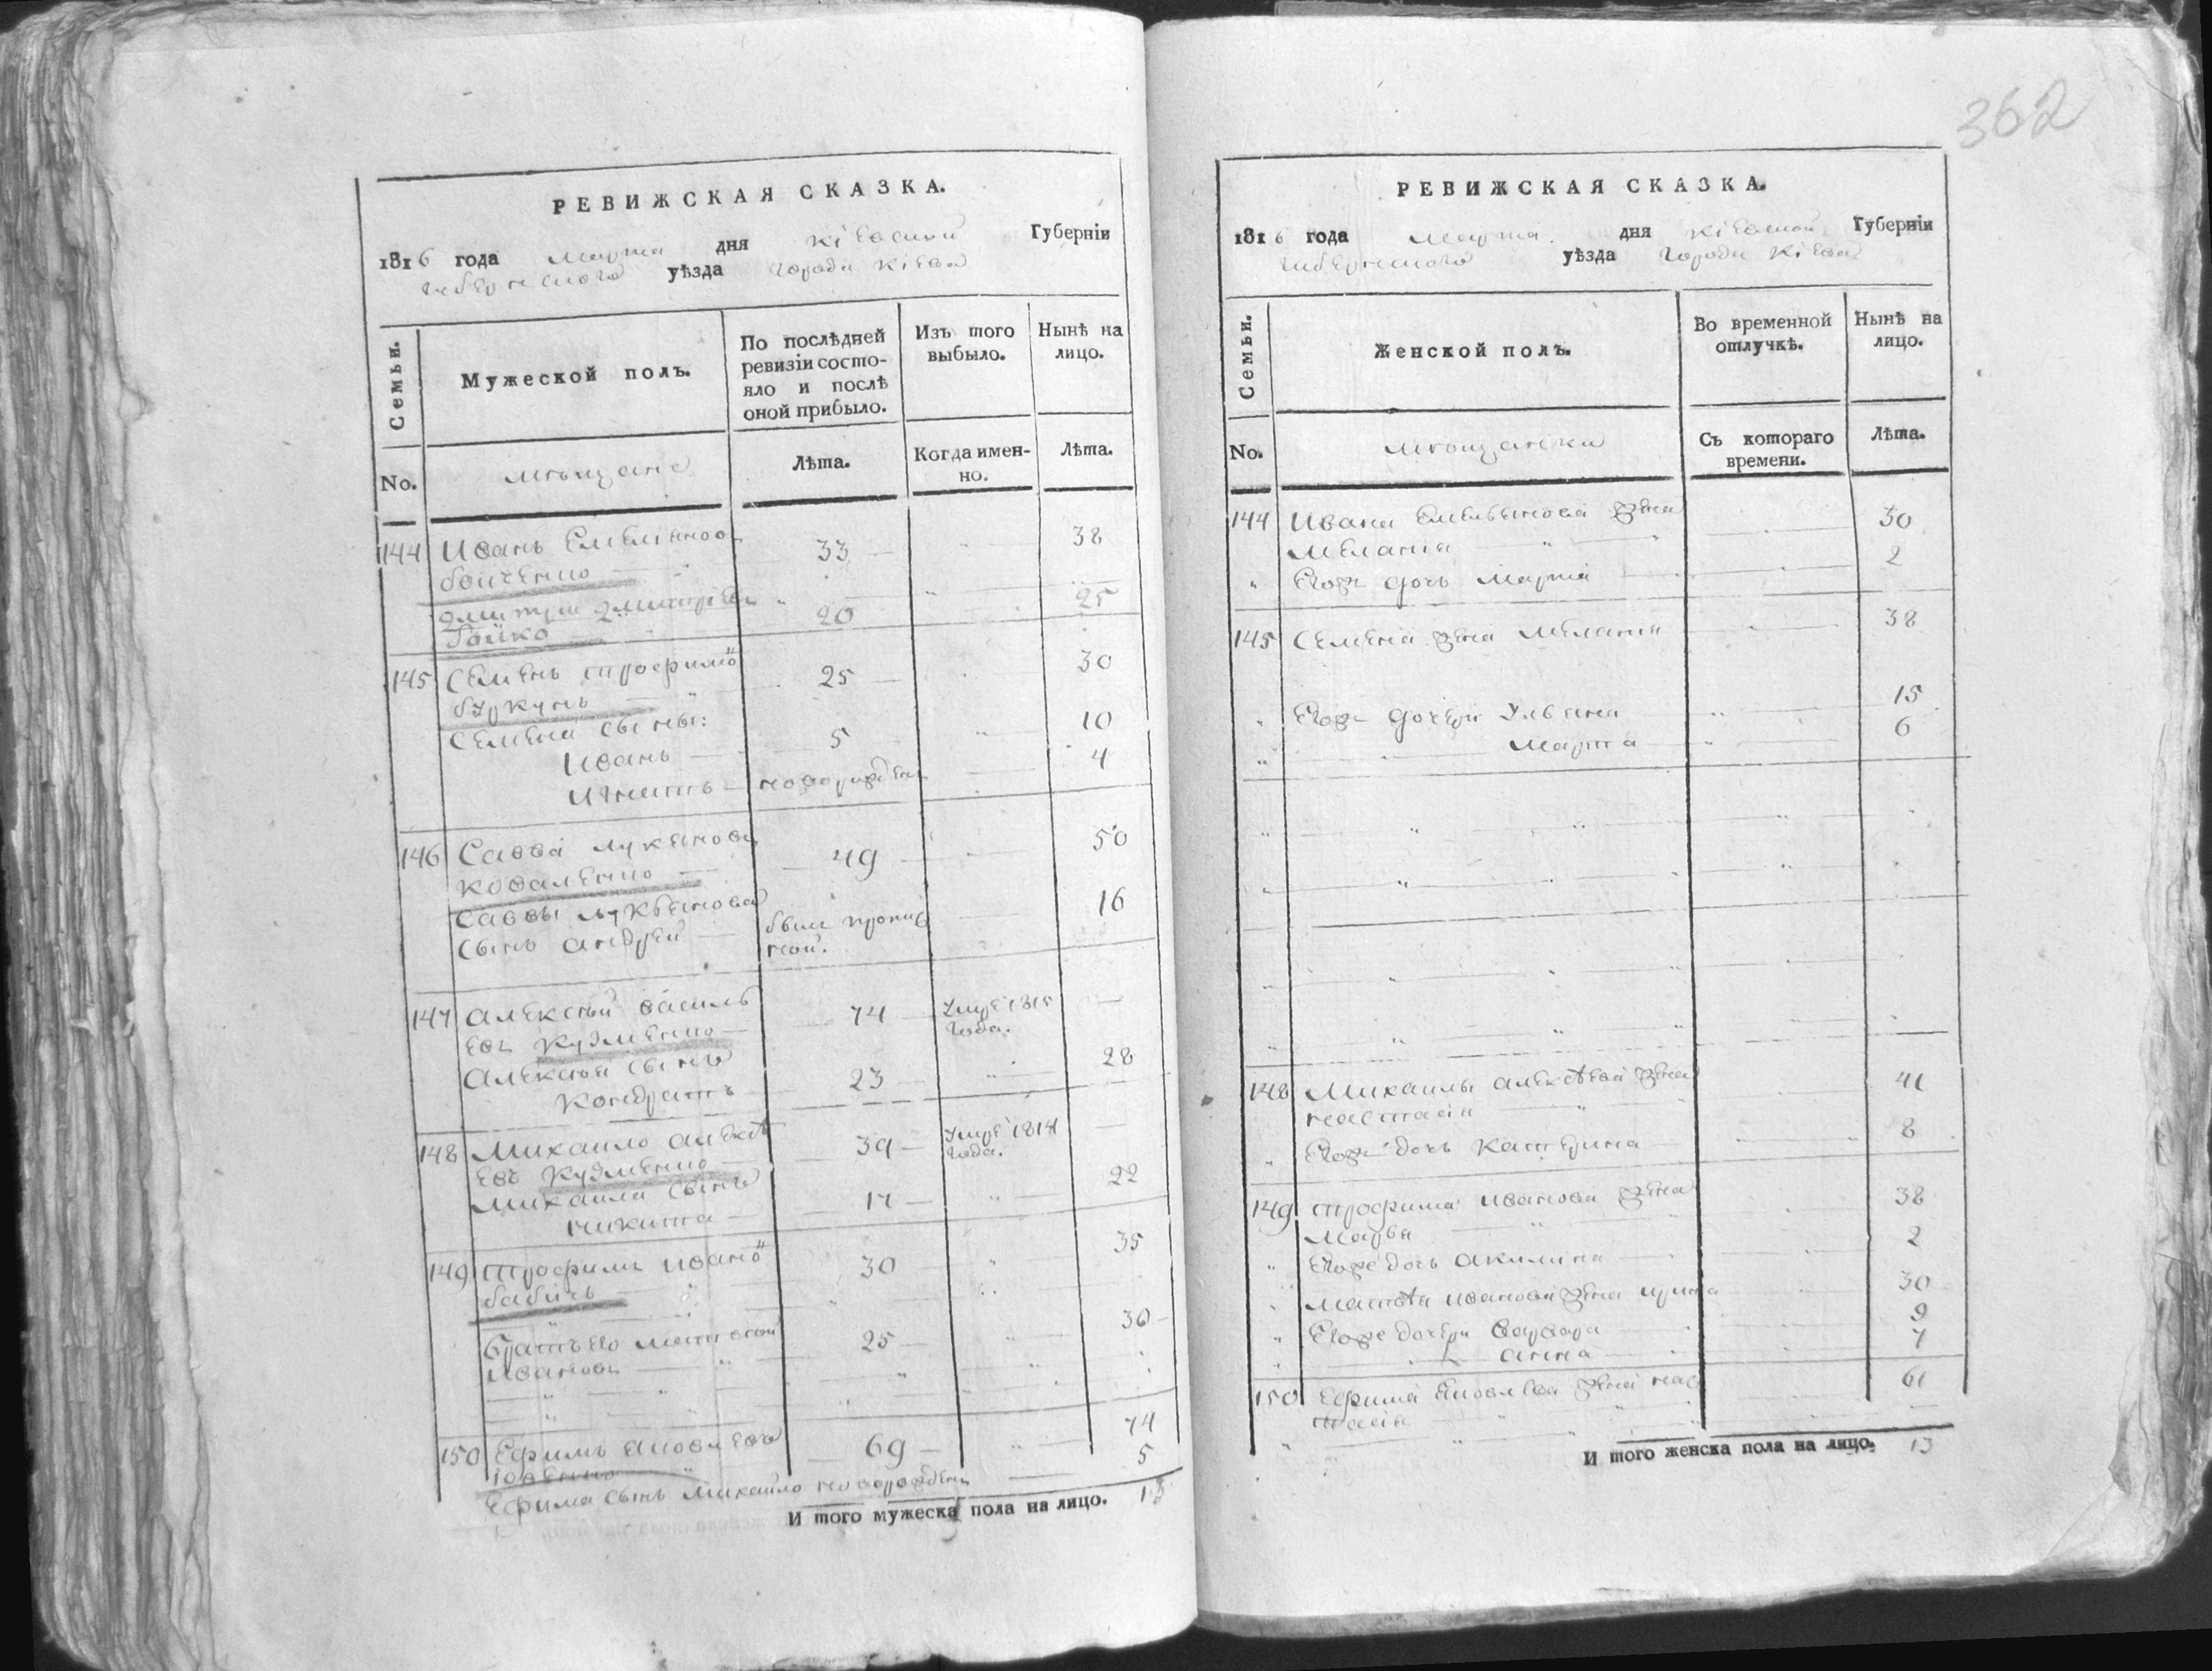 362
РЕВИЖСКАЯ СКАЗКА.
1816 года Марта дня Кіевской Губерніи
Губернского уѣзда города Кіева
Семьи.
Мужеской полъ.
По послѣдней
ревизіи состо-
яло и послѣ
оной прибыло.
Изъ того
выбыло.
Нынѣ на
лицо.
No.
мѣщане
Лѣта.
Когда имен-
но.
Лѣта.
144 Иванъ Емелянов 33 38
бойченко
Дмитри Дмитріев 20 25
Бойко
145 Семенъ трофимо 25 30
буркунъ
Семена сыны:
Иванъ 5 10
Игнатъ новорожден 4
146 Савва лукянов 49 50
коваленко
Саввы лукьянова
сынъ андрей был пропис 16
ной.
147 алексѣй василь 74 Умре 1815
евъ Кузменко года.
алексѣя сынъ
Кондратъ 23 28
148 Михайло алексѣ 39 Умре 1814
евъ Кузменко года.
михайла сынъ
никита 17 22
149 трофимъ ивано 30 35
бабичъ
братъ его матвѣй 25 30
Ивановъ
150 Ефимъ яковлевъ 69 74
Ефима сынъ михайло новорожден 5
И того мужеска пола на лицо. 13
РЕВИЖСКАЯ СКАЗКА.
1816 года Марта дня Кіевской Губерніи
Губернского уѣзда города Кіева
Семьи.
Женской полъ.
Во временной
отлучкѣ.
Нынѣ на
лицо.
No.
мѣщанки
Съ котораго
времени.
Лѣта.
144 Ивана Емельянова жена 30
Меланія
Егоже дочь Марфа 2
145 Семена жена Меланія 38
Егоже дочери Ульяна 15
Марта 6
148 Михайлы алексѣева жена 41
настасія
Егоже дочь Катерина 8
149 трофима иванова жена 38
Марья
Егоже дочь акилина 2
матвѣя иванова жена ирина 30
Егоже дочери варвара 9
анна 7
150 Ефима яковлева жена нас 61
тасія
И того женска пола на лицо. 13